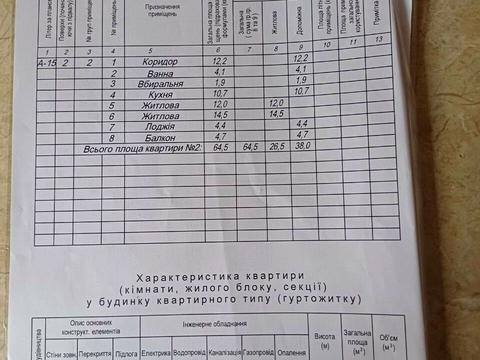 Літер за планом
Поверхи (починаючи з підвалу)
№ груп приміщень
№ приміщень
Призначення приміщень
Загальна площа
Загальна (сума гр.гр. 8 та 9)
Житлова
Допоміжна
Площа літніх приміщень
Примітка
1 2 3 4 5 6 7 8 9 10 11 12 13
А-15 2 2 1 Коридор 12,2 12,2
2 Ванна 4,1 4,1
3 Вбиральня 1,9 1,9
4 Кухня 10,7 10,7
5 Житлова 12,0 12,0
6 Житлова 14,5 14,5
7 Лоджія 4,4 4,4
8 Балкон 4,7 4,7
Всього площа квартири №2: 64,5 64,5 26,5 38,0
Характеристика квартири
(кімнати, жилого блоку, секції)
у будинку квартирного типу (гуртожитку)
Опис основних конструкт. елементів
Інженерне обладнання
Висота (м)
Загальна площа (м²)
Об'єм (м³)
Стіни зовн. Перекриття Підлога Електрика Водопровід Каналізація Газопровід Опалення